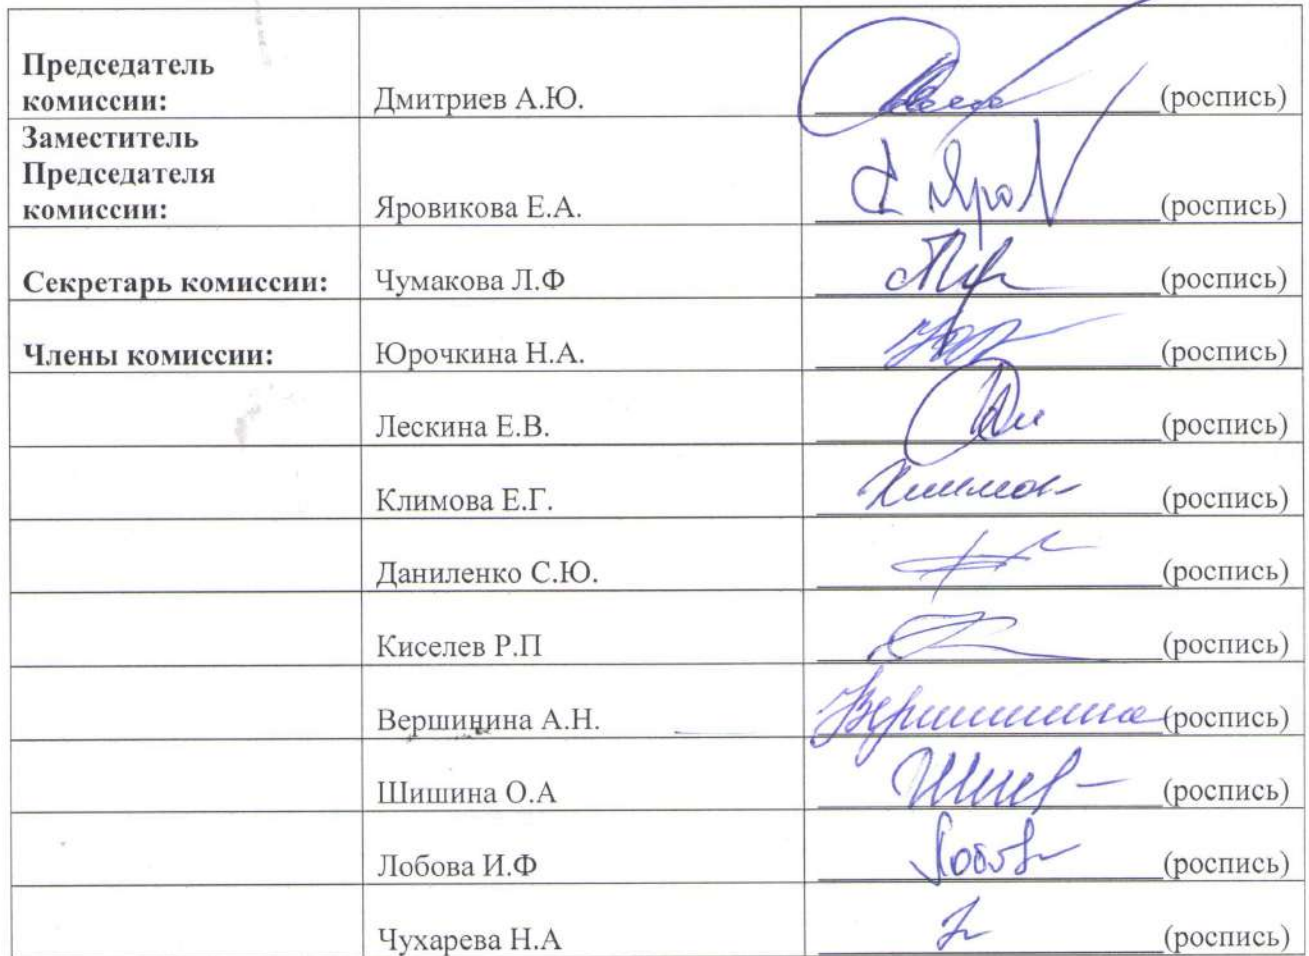 Председатель
комиссии:
Дмитриев А.Ю.
(роспись)
Заместитель
Председателя
комиссии:
Яровикова Е.А.
(роспись)
Секретарь комиссии:
Чумакова Л.Ф
(роспись)
Члены комиссии:
Юрочкина Н.А.
(роспись)
Лескина Е.В.
(роспись)
Климова Е.Г.
(роспись)
Даниленко С.Ю.
(роспись)
Киселев Р.П
(роспись)
Вершинина А.Н.
Вершинина (роспись)
Шишина О.А
(роспись)
Лобова И.Ф
(роспись)
Чухарева Н.А
(роспись)